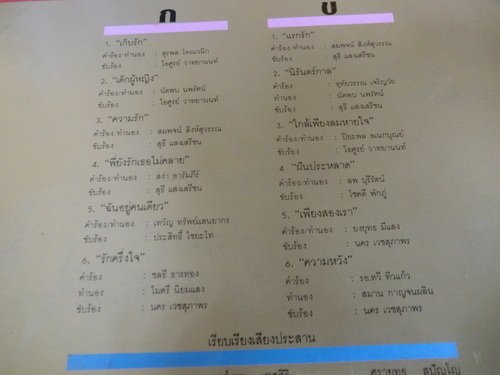 ก
1. "เก็บรัก"
คำร้อง/ทำนอง : สุรพล โทณวนิก
ขับร้อง : ไอศูรย์ วาทยานนท์
2. "เด็กผู้หญิง"
คำร้อง/ทำนอง : นัดพบ นพรัตน์
ขับร้อง : ไอศูรย์ วาทยานนท์
3. "ความรัก"
คำร้อง/ทำนอง : สมพจน์ สิงห์สุวรรณ
ขับร้อง : สุธี แสงเสรีชน
4. "พี่ยังรักเธอไม่คลาย"
คำร้อง/ทำนอง : สง่า อารัมภีร์
ขับร้อง : สุธี แสงเสรีชน
5. "ฉันอยู่คนเดียว"
คำร้อง/ทำนอง : เทวัญ ทรัพย์แสนยากร
ขับร้อง : ประสิทธิ์ ไชยะโท
6. "รักครึ่งใจ"
คำร้อง : ชลธี ธารทอง
ทำนอง : ไมตรี นิยมแสง
ขับร้อง : นคร เวชสุภาพร
ข
1. "แรกรัก"
คำร้อง/ทำนอง : สมพจน์ สิงห์สุวรรณ
ขับร้อง : สุธี แสงเสรีชน
2. "นิรันดร์กาล"
คำร้อง : อุทัยวรรณ เจริญวัย
ทำนอง : นัดพบ นพรัตน์
ขับร้อง : สุธี แสงเสรีชน
3. "ใกล้เพียงลมหายใจ"
คำร้อง/ทำนอง : ปิยะพล เอนกบุณย์
ขับร้อง : ไอศูรย์ วาทยานนท์
4 "ฝันประหลาด"
คำร้อง/ทำนอง : ลพ บุรีรัตน์
ขับร้อง : โชคดี พักภู่
5. "เพียงสองเรา"
คำร้อง/ทำนอง : ยงยุทธ มีแสง
ขับร้อง : นคร เวชสุภาพร
6. "ความหวัง"
คำร้อง : รอ.ทวี ทิวแก้ว
ทำนอง : สมาน กาญจนผลิน
ขับร้อง : นคร เวชสุภาพร
เรียบเรียงเสียงประสาน